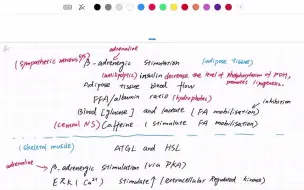 adrenaline
(sympathetic nervous sys) β-adrenergic stimulation (adipose tissue)
(antilipolytic) insulin decrease the level of phosphorylation of PDH, promotes lipogenesis.
Adipose tissue blood flow
FFA/albumin ratio (hydrophobic)
inhibition
Blood [glucose] and lactate (FA mobilisation)
(central NS) Caffeine (stimulate FA mobilisation)
(skeletal muscle) ATGL and HSL
adrenaline β-adrenergic stimulation (via PKA)
ERK / Ca²⁺ stimulate (extracellular regulated kinase)